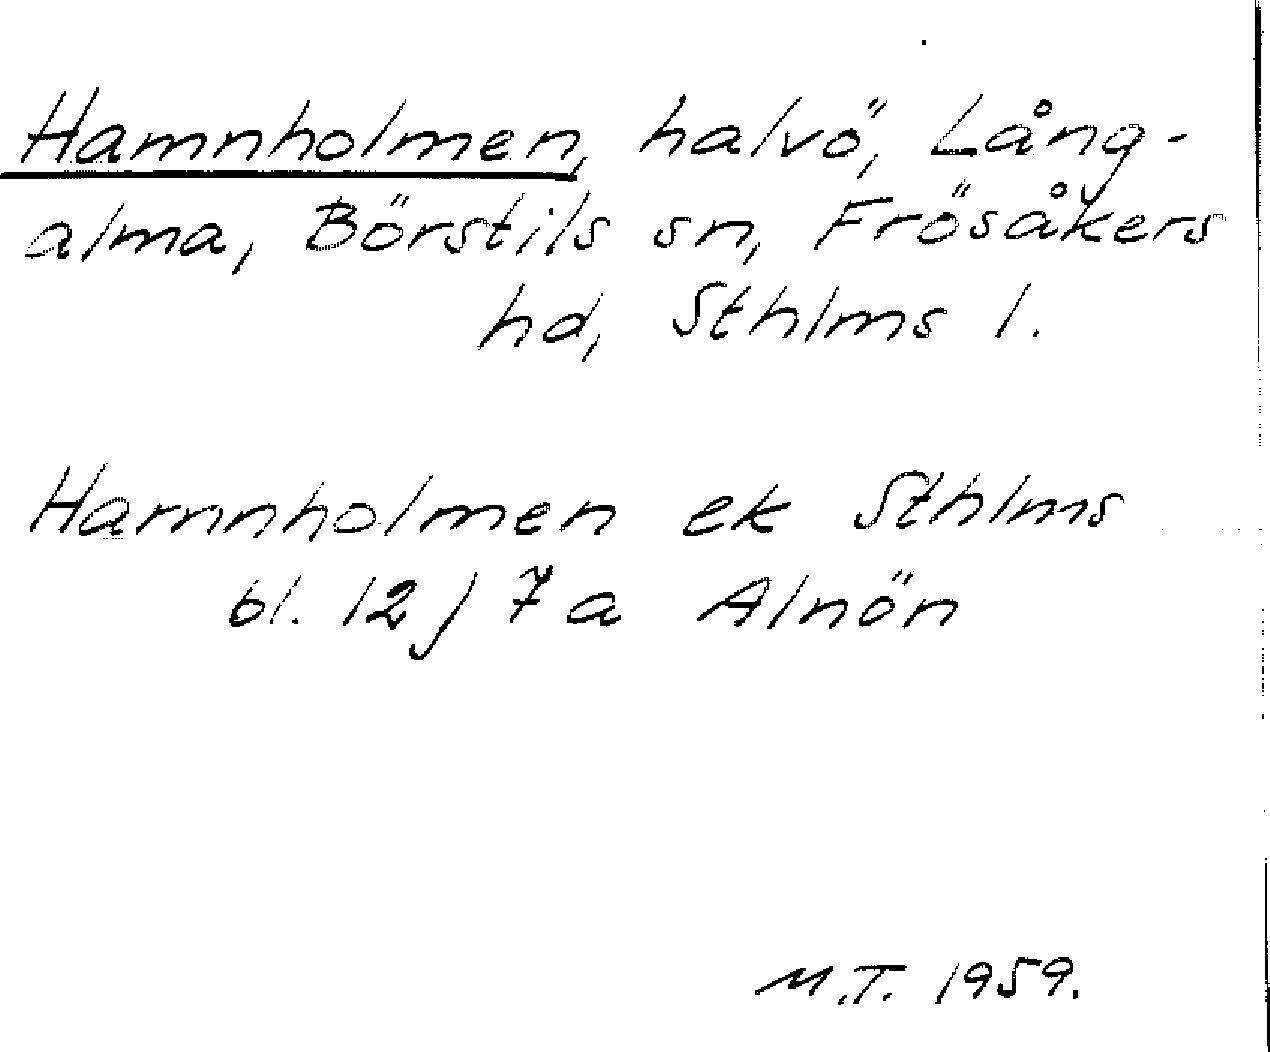 Hamnholmen, halvö, Lång-
alma, Börstils sn, Frösåkers
hd, Sthlms l.
Hamnholmen ek Sthlms
bl. 12 j 7 a Alnön
M.T. 1959.